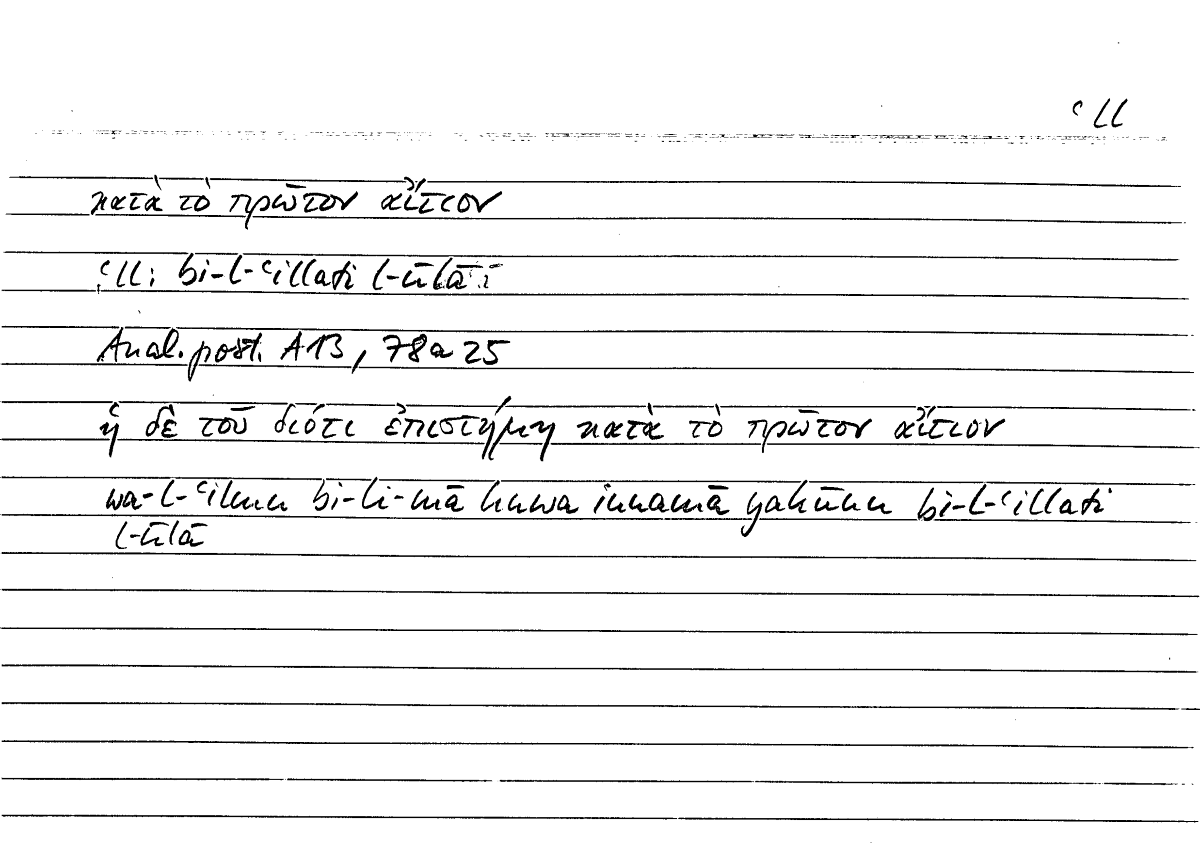 ʿll
κατὰ τὸ πρῶτον αἴτιον
ʿll: bi-l-ʿillati l-ūlā
Anal. post. A 13, 78a25
ἡ δὲ τοῦ διότι ἐπιστήμη κατὰ τὸ πρῶτον αἴτιον
wa-l-ʿilmu bi-li-mā huwa innamā yakūnu bi-l-ʿillati
l-ūlā